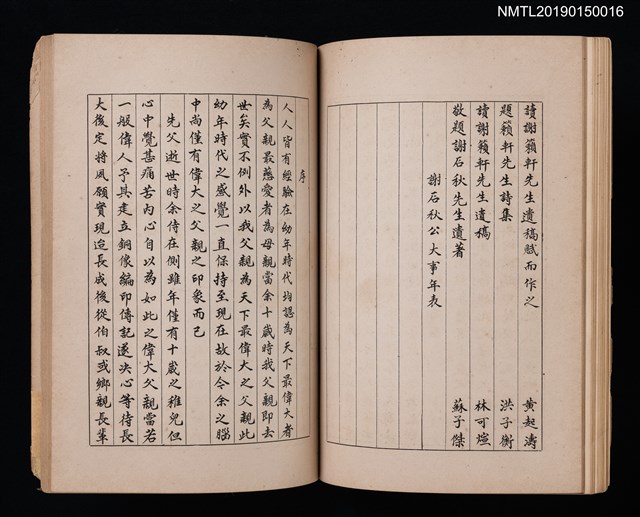 NMTL20190150016
讀謝籟軒先生遺稿賦而作之 黃起濤
題籟軒先生詩集 洪子衡
讀謝籟軒先生遺稿 林可煊
敬題謝石秋先生遺著 蘇子傑
謝石秋公大事年表
序
人人皆有經驗在幼年時代均認為天下最偉大者
為父親最慈愛者為母親當余十歲時我父親即去
世矣實不例外以我父親為天下最偉大之父親此
幼年時代之感覺一直保持至現在故於今余之腦
中尚僅有偉大之父親之印象而已
先父逝世時余侍在側雖年僅有十歲之稚兒但
心中覺甚痛苦內心自以為如此之偉大父親當若
一般偉人予具走立銅像編印傳記遂決心等待長
大後定將夙願實現迨長成後從伯叔或鄉親長輩